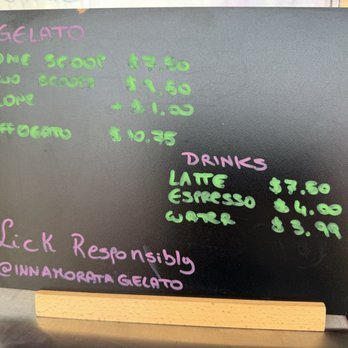 GELATO
ONE SCOOP $7.50
TWO SCOOPS $9.50
CONE + $1.00
AFFOGATO $10.75
DRINKS
LATTE $7.50
ESPRESSO $4.00
WATER $3.99
Lick Responsibly
@INNAMORATAGELATO